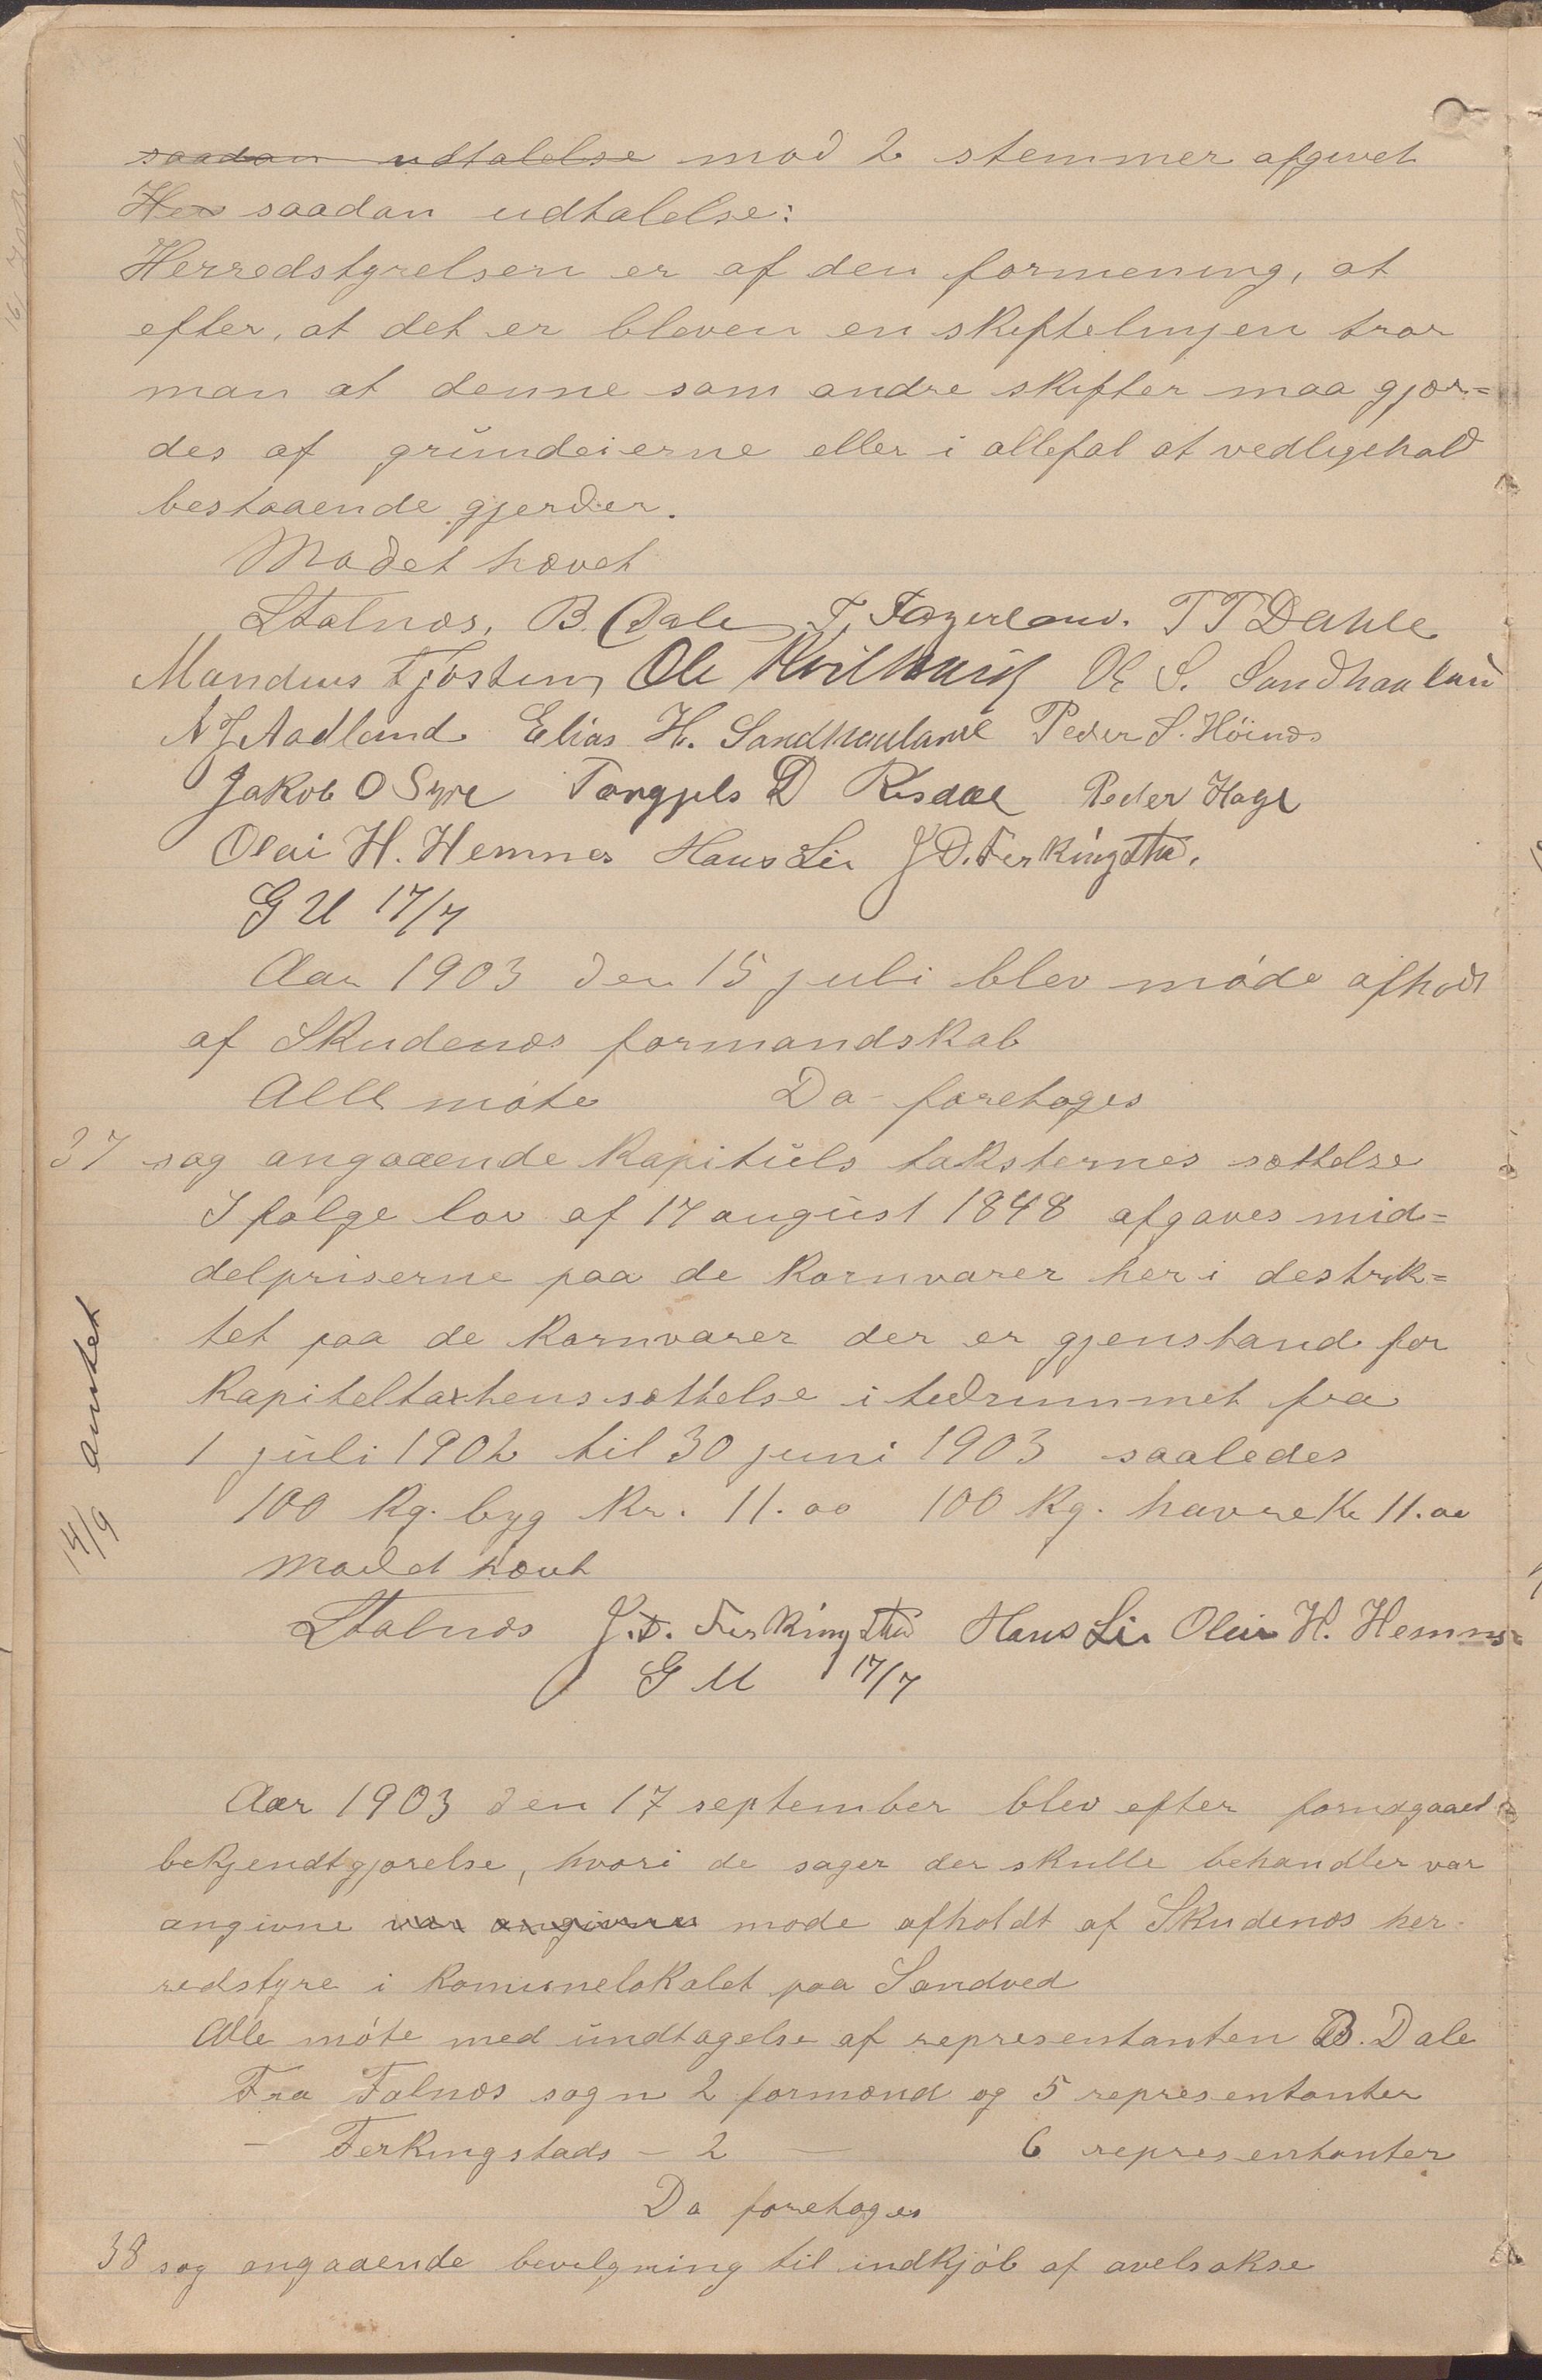 saadan udtalelse mod 2 stemmer afgivet
Her saadan udtalelse:
Herredstyrelsen er af den formening, at
efter, at det er bleven en skiftelinjen tror
man at denne som andre skifter maa gjær=
des af grundeierne eller i allefal at vedligehold
bestaaende gjerder.
Mødet hævet
Stalnæs, B. Dale T. Fagerland. T T Dahle
Mandius Tjøsteim Ole Kvilhaug O S. Sandhaaland
A J Aadland Elias H. Sandhaaland Peder S. Höinæs
Jakob O Syre Torgjels D Risdal Peder Hage
Olai H. Hemnes Hans Lie J D. Ferkingsta.
G U 17/7
Aar 1903 den 15 juli blev møde afhold
af Skudenæs formandskab
Alle møte Da foretages
37 sag angaaende Kapitüls taksternes sættelse
I følge lov af 17 august 1848 afgaves mid=
delpriserne paa de Kornvarer her i destrik=
tet paa de Kornvarer der er gjenstand for
Kapiteltaxtens sættelse i tidrummet fra
1 juli 1902 til 30 juni 1903 saaledes
100 Kg. byg Kr. 11.00 100 Kg. havre Kr 11.00
14/9 amtet
Mødet hævt
Stalnæs J. D. Ferkingsta Hans Lie Olai H. Hemnes
G U 17/7
Aar 1903 den 17 september blev efter forudgaaed
bekjendtgjørelse, hvori de sager der skulle behandler var
angivne var angivne møde afholdt af Skudenæs her-
redstyre i Komunelokalet paa Sandved
Alle møte med undtagelse af representanten B. Dale
Fra Falnæs sogn 2 formænd og 5 representanter
— Ferkingstads — 2 — 6 representanter
Da foretages
38 sag angaaende bevilgning til indkjøb af avelsokse